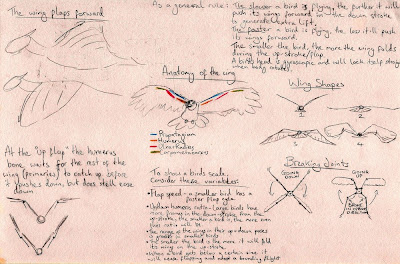 The wing flaps forward
As a general rule: The slower a bird is flying, the further it will
push its wings forward in the down stroke
to generate extra lift.
The faster a bird is flying, the less it'll push
its wings forward.
The smaller the bird, the more the wing folds
during the up-stroke/flap
A birds head is gyroscopic and will lock itself straight
when body rotates.
Anatomy of the wing
Propatagium
Humerus
Ulna+Radius
Carpometacarpus
Wing Shapes
1
2
3
4
At the "Up flap" the humerus
bone waits for the rest of the
wing (primaries) to catch up before
it pushes down, but does still ease
down
To show a birds scale.
Consider these variables:
• Flap speed - a smaller bird has a
faster flap cycle
up/down humerus ratio - Large birds have
more frames in the down-stroke from the
up-stroke, the smaller a bird is, the more even
this ratio will be
• The range of the wing in their up + down poses
is greater in smaller birds
• The smaller the bird is the more it will fold
its wing on the up-stroke
• When a bird gets below a certain size it
will cease flapping and adopt a bounding flight
Breaking Joints
GOING
UP
GOING
DOWN